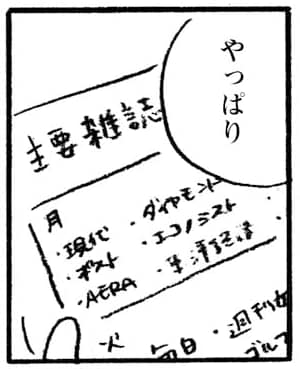 やっぱり
主要雑誌
月
・現代
・ポスト
・AERA
・ダイヤモンド
・エコノミスト
・東洋経済
火
毎日
・週刊女
ゴルフ